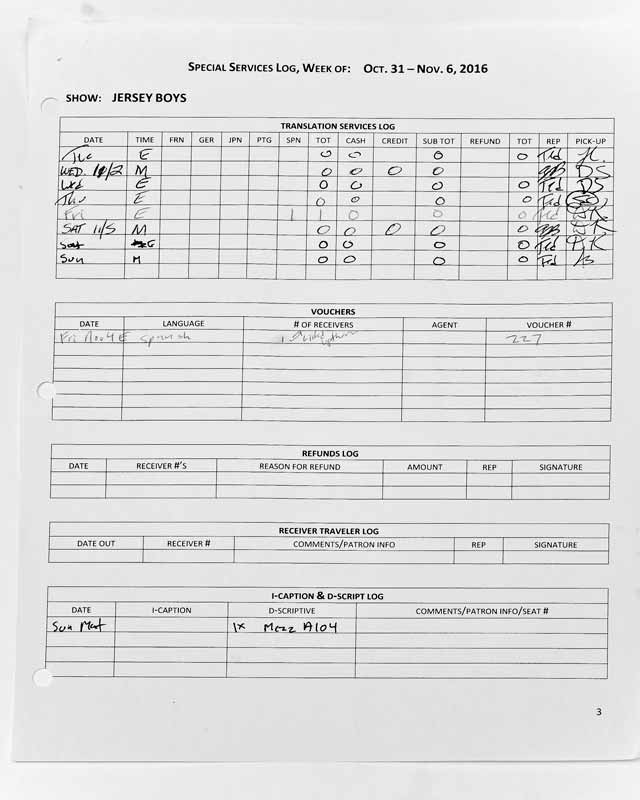 SPECIAL SERVICES LOG, WEEK OF: OCT. 31 – NOV. 6, 2016
SHOW: JERSEY BOYS
TRANSLATION SERVICES LOG
DATE TIME FRN GER JPN PTG SPN TOT CASH CREDIT SUB TOT REFUND TOT REP PICK-UP
Tue E 0 0 0 0 Ted
WED. 11/2 M 0 0 0 0 DS
Wed E 0 0 0 0 Ted DS
Thu E 0 0 0 0 Ted
Fri E 1 1 0 0 0 Ted
SAT 11/5 M 0 0 0 0 0
Sat E 0 0 0 0 Ted
Sun M 0 0 0 0 Ted
VOUCHERS
DATE LANGUAGE # OF RECEIVERS AGENT VOUCHER #
Fri Nov 4 E Spanish 1 227
REFUNDS LOG
DATE RECEIVER #'S REASON FOR REFUND AMOUNT REP SIGNATURE
RECEIVER TRAVELER LOG
DATE OUT RECEIVER # COMMENTS/PATRON INFO REP SIGNATURE
I-CAPTION & D-SCRIPT LOG
DATE I-CAPTION D-SCRIPTIVE COMMENTS/PATRON INFO/SEAT #
Sun Mat 1x Mezz A104
3